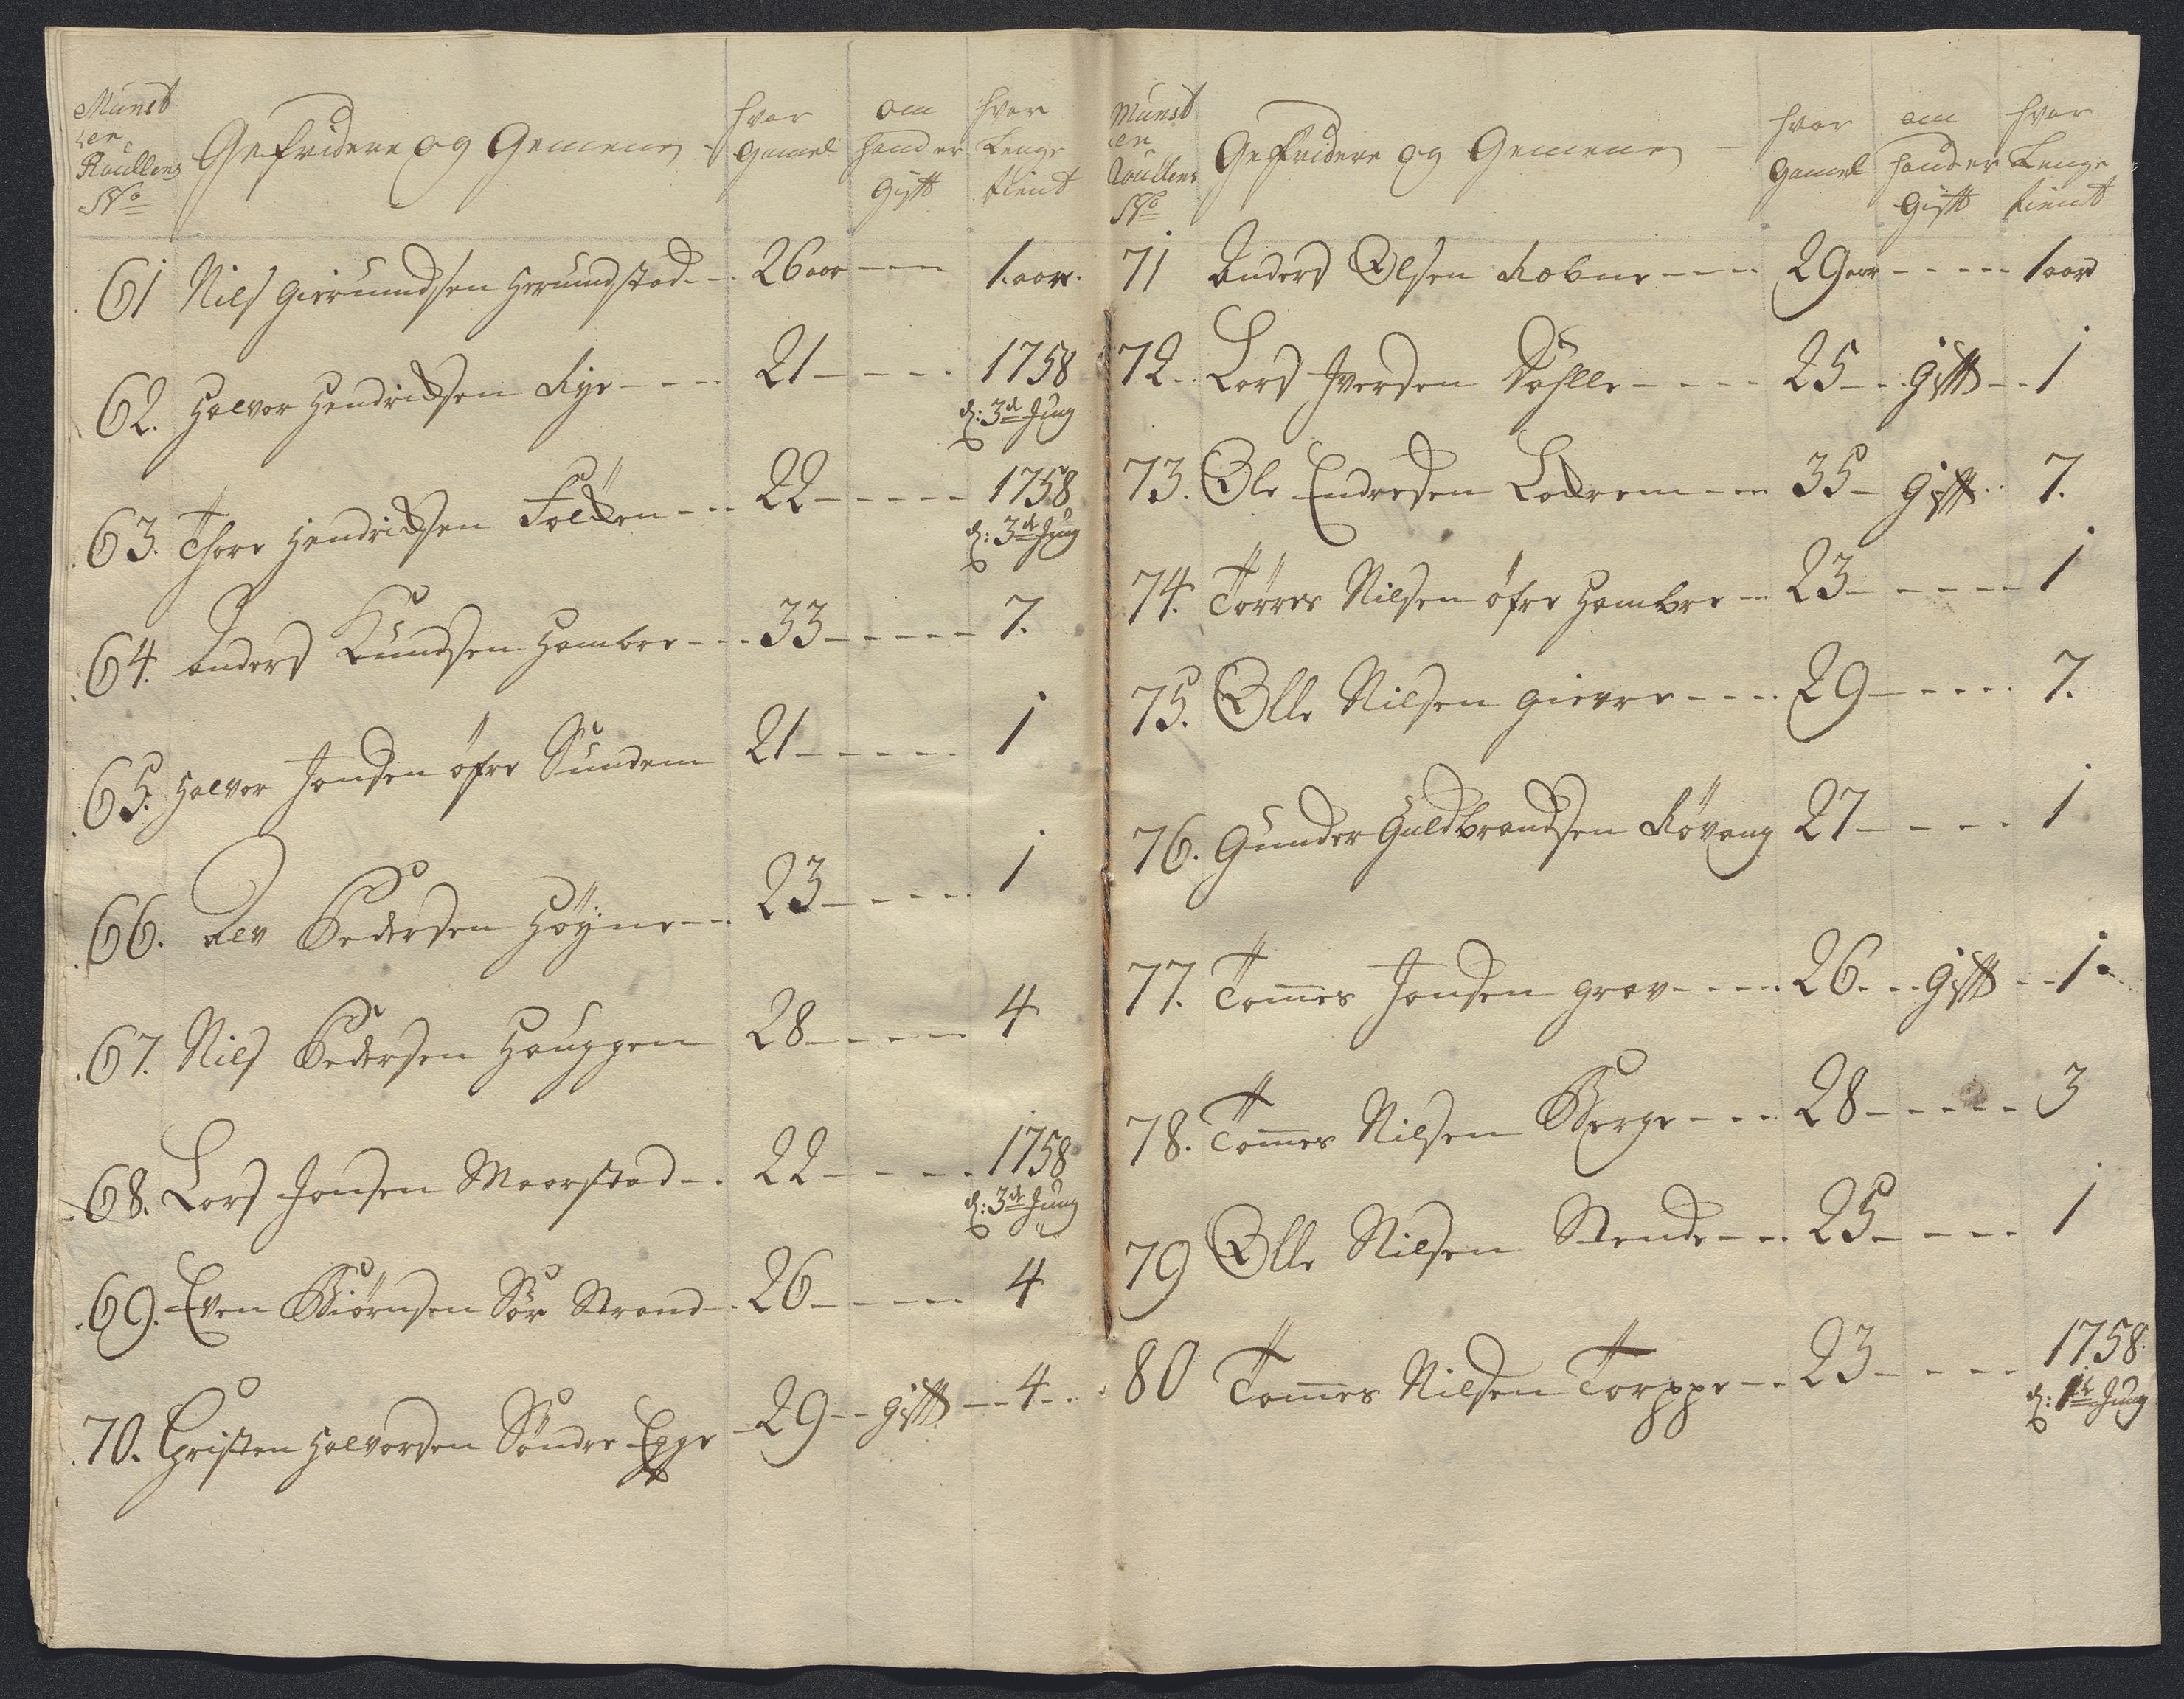 Munst
er
Roullens
No
Gefridere og Gemene
hvor
gamel
om
hand er
gift
hvor
Lenge
tient
61 Nils Gierumdsen Herumdstad 26 aar 1 aar.
62. Halvor Hendrichsen Rye 21 1758
d: 3de Juny
63. Thore Hendrichsen Folcken 22 1758
d: 3de Juny
64. Anders Knudsen Hambre 33 7.
65. Halvor Jonsen öfre Sundem 21 1
66. Alv Pedersen Höyne 23 1
67. Nils Pedersen Hauggen 28 4
68. Lars Jonsen Maarstad 22 1758
d: 3de Juny
69. Even Biörnsen Sör Strand 26 4
70. Christen Halvorsen Söndre Egge 29 gift 4
Munst
er
Roullens
No
Geffridere og Gemene
hvor
gamel
om
hand er
gift
hvor
Lenge
tient
71 Anders Olsen Robne 29 aar 1 aar
72. Lars Iversen Dahlle 25 gift 1
73. Ole Endresen Lockrem 35 gift 7.
74. Törres Nilsen öfre Hambre 23 1
75. Olle Nilsen Gievre 29 7.
76. Gunder Guldbrandsen Rövang 27 1
77. Tomes Jonsen Grav 26 gift 1
78. Tomes Nilsen Berge 28 3
79 Olle Nilsen Stende 25 1
80 Tomes Nilsen Torppe 23 1758.
d: 1te Juny